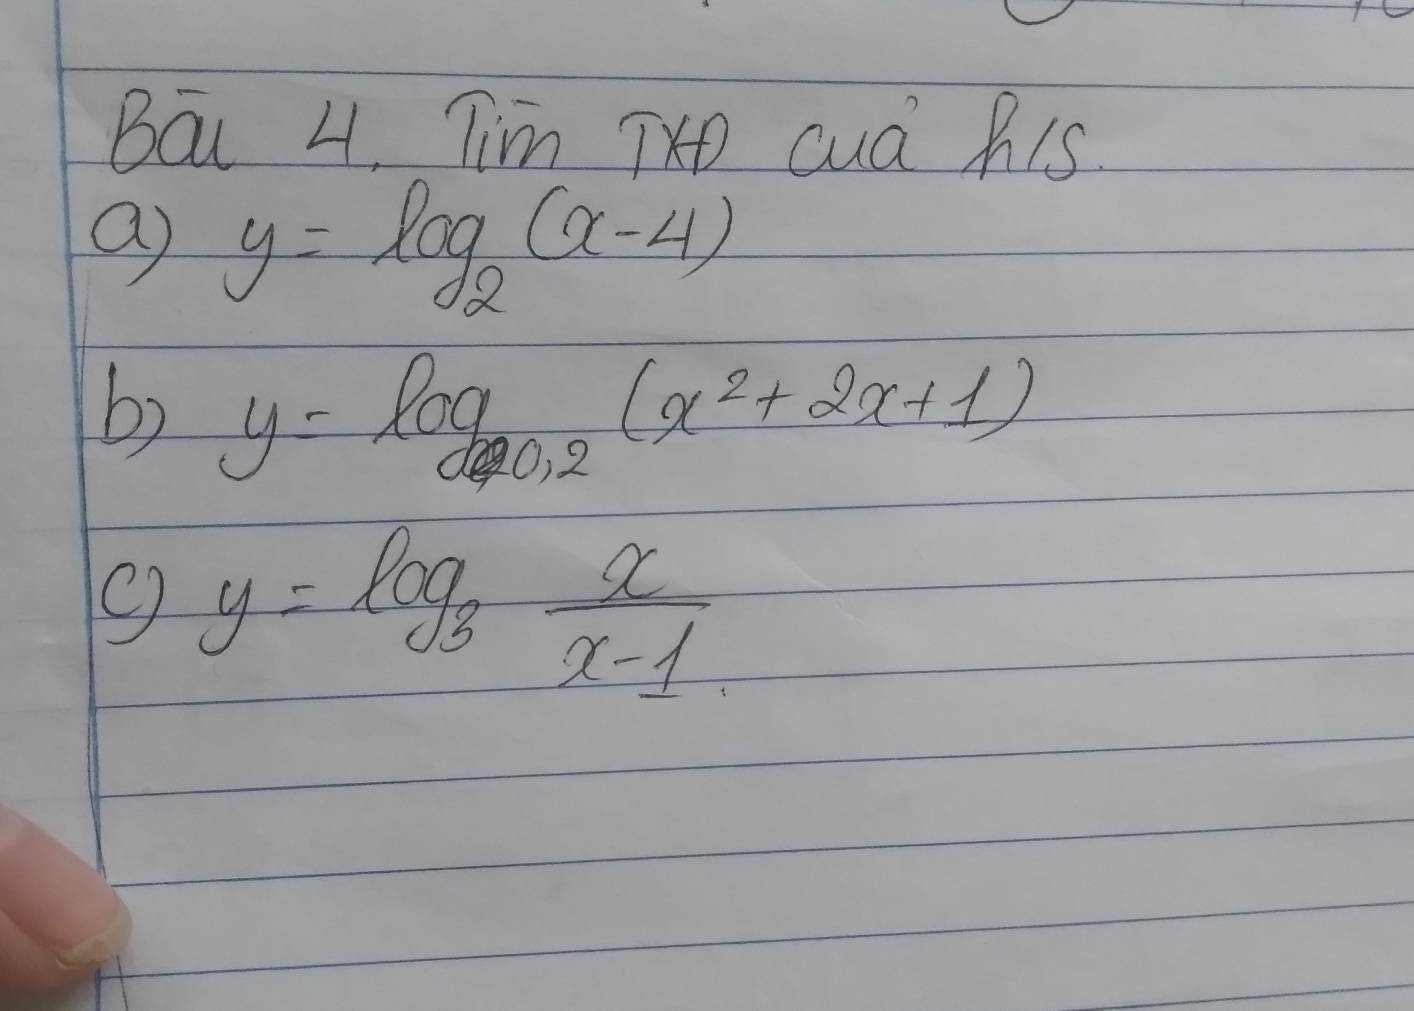 Bài 4. Tìm TXĐ của h/s.
a) y = log₂ (x-4)
b) y = log₀,₂ (x² + 2x + 1)
c) y = log₃ x/(x-1).